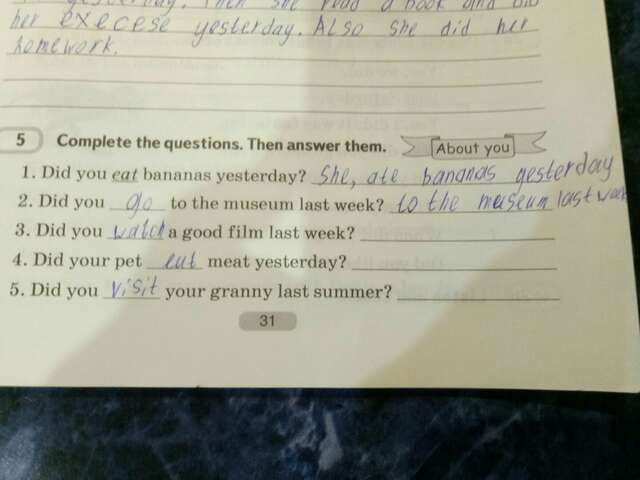 yesterday. Then she read a book and did
her execese yesterday. Also she did her
homework.
5 Complete the questions. Then answer them. About you
1. Did you eat bananas yesterday? She, ate bananas yesterday
2. Did you go to the museum last week? to the museum last week
3. Did you watch a good film last week?
4. Did your pet eat meat yesterday?
5. Did you visit your granny last summer?
31